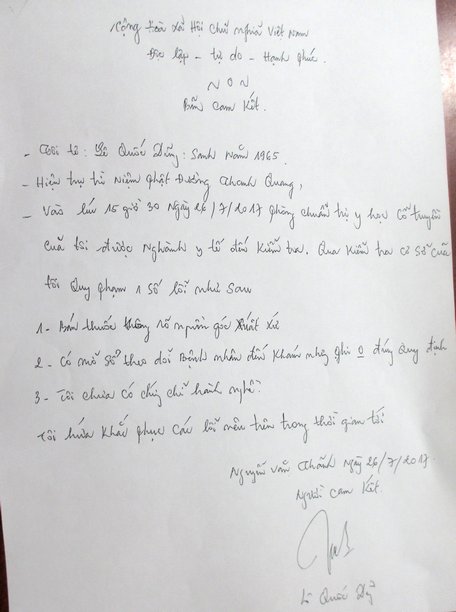 Cộng Hòa Xã Hội Chủ Nghĩa Việt Nam
Độc lập - Tự do - Hạnh phúc.
~ N O N
Bản Cam Kết.
- Tôi tê : Lê Quốc Dũng : Sanh Năm 1965.
- Hiện trụ trì Niệm Phật Đường Thanh Quang,
- Vào lúc 15 giờ 30 Ngày 26/7/2017 phòng chuẩn trị y học cổ truyền
của tôi được Nghành y tế đến kiểm tra. Qua kiểm tra cơ sở của
tôi Quy phạm 1 Số lỗi như sau
1 - Bán thuốc không rõ nguồn gốc Xuất Xứ
2 - Có mở Sổ theo dõi Bệnh nhân đến khám nhưng ghi 0 đúng Quy định
3 - Tôi chưa có chứng chỉ hành nghề.
Tôi hứa khắc phục các lỗi nêu trên trong thời gian tới
Nguyễn Văn Thành Ngày 26/7/2017.
Người cam kết.
Lê Quốc Dũng